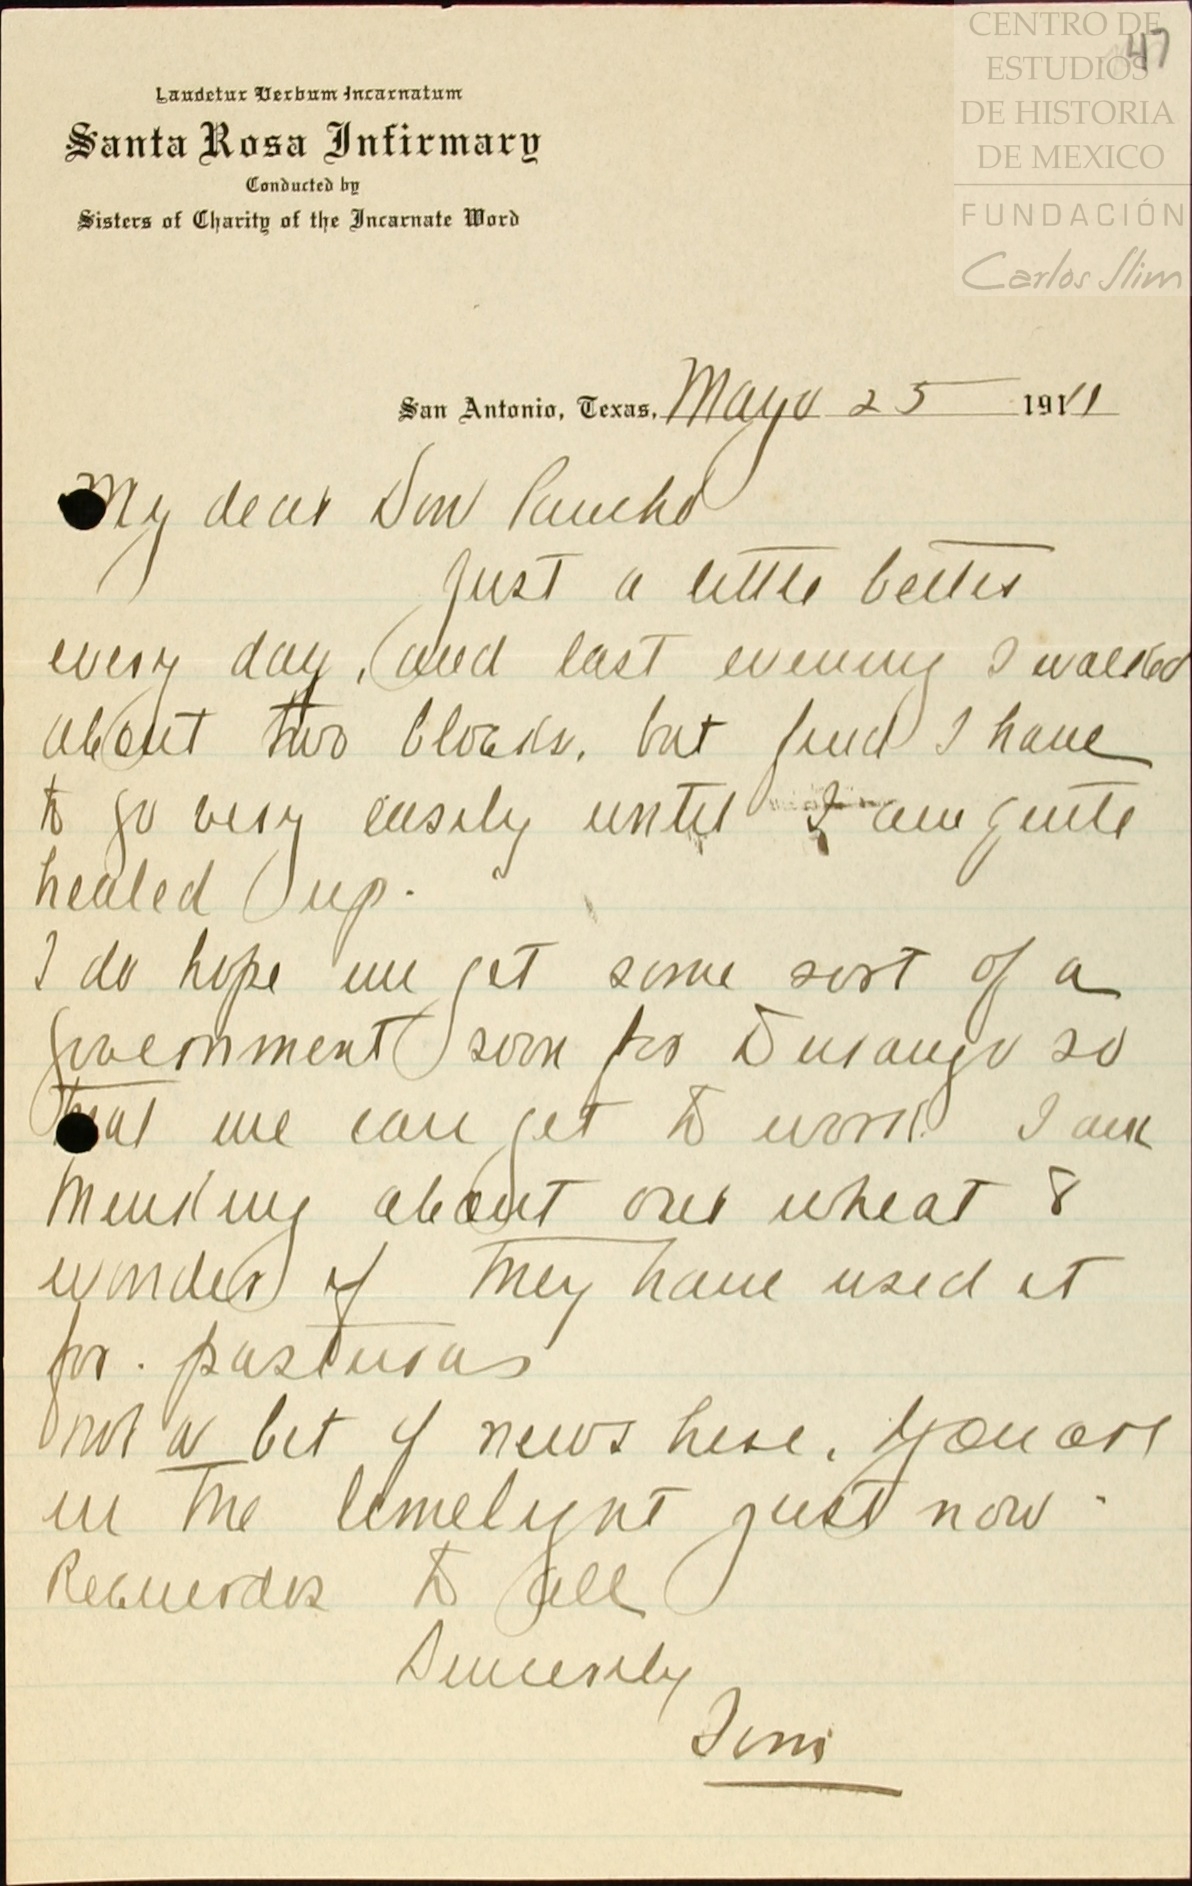 CENTRO DE
ESTUDIOS
DE HISTORIA
DE MEXICO
FUNDACIÓN
Carlos Slim
47
Laudetur Verbum Incarnatum
Santa Rosa Infirmary
Conducted by
Sisters of Charity of the Incarnate Word
San Antonio, Texas, Mayo 25 1911
My dear Don Pancho
Just a little better
every day, and last evening I walked
about two blocks, but find I have
to go very easily until I am quite
healed up.
I do hope we get some sort of a
government soon for Durango so
that we can get to work. I am
thinking about our wheat &
wonder if they have used it
for pasturas
not a bit of news here. You are
in the limelight just now.
Recuerdos to all
Sincerely